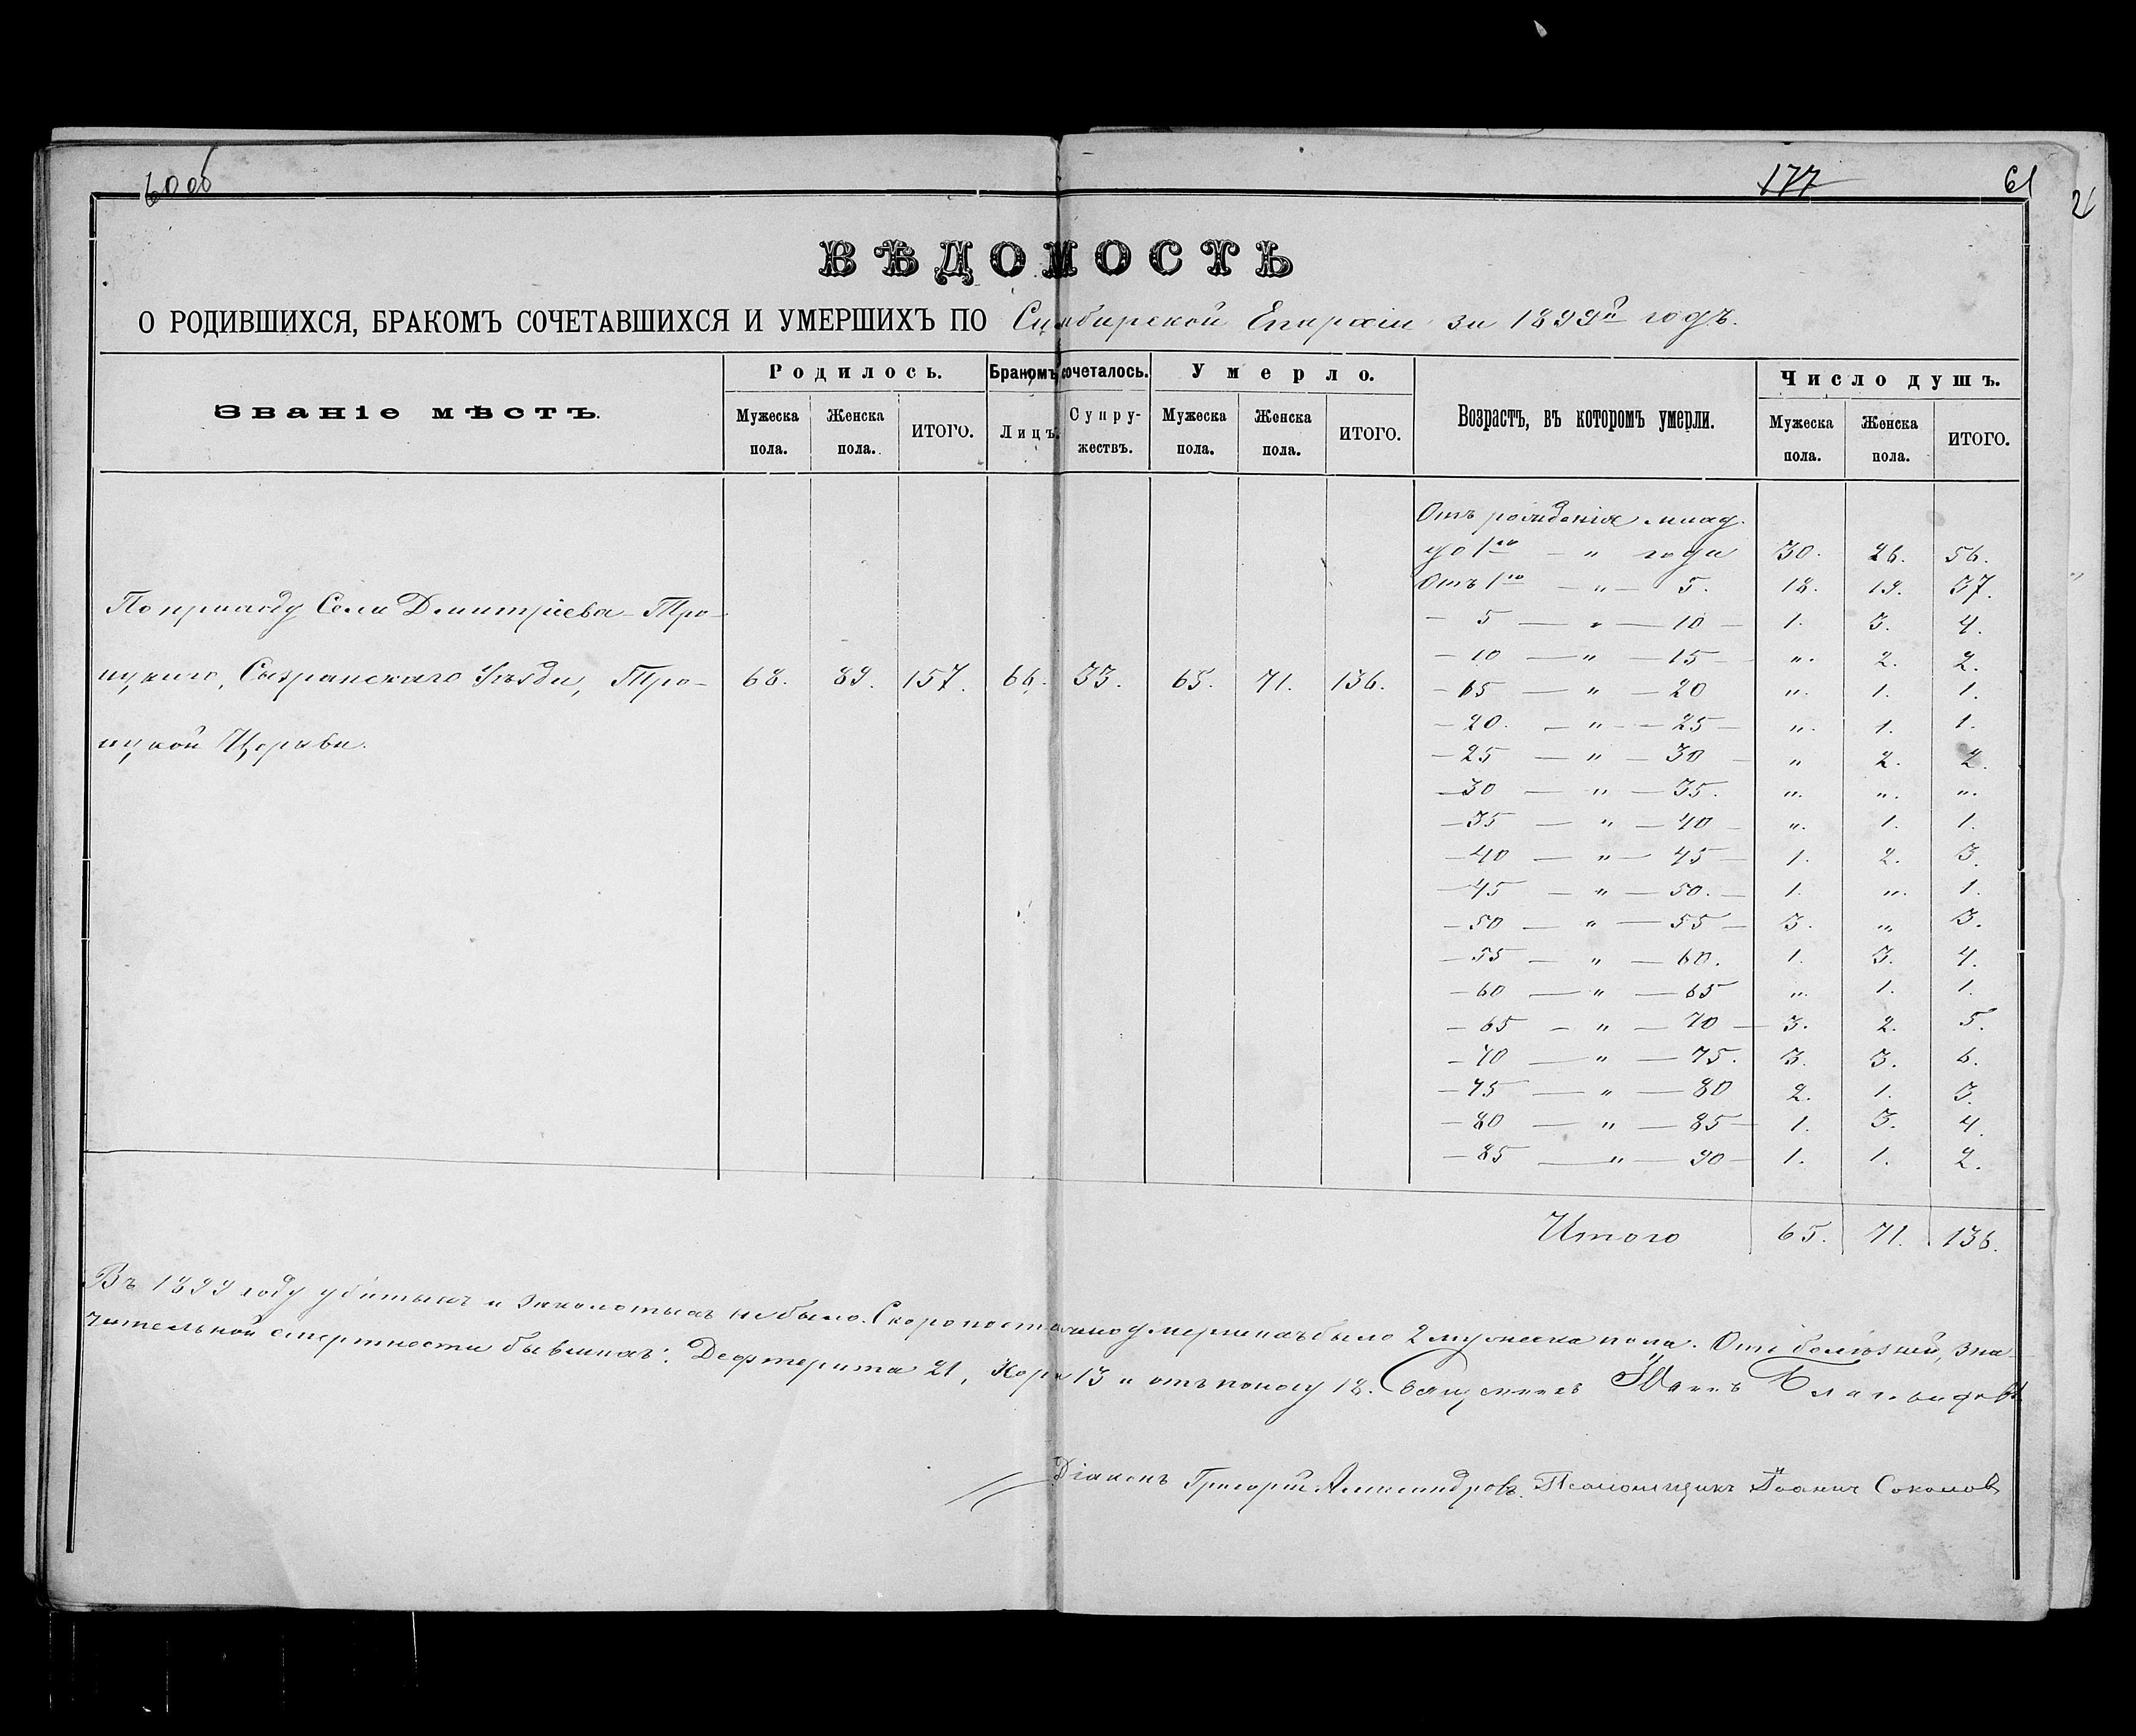 60об
177
61
2
ВѢДОМОСТЬ
О РОДИВШИХСЯ, БРАКОМЪ СОЧЕТАВШИХСЯ И УМЕРШИХЪ ПО Симбирской Епархіи за 1899й годъ.
Званіе мѣстъ.
Родилось.
Бракомъ сочеталось.
Умерло.
Возрастъ, въ которомъ умерли.
Число душъ.
Мужеска пола.
Женска пола.
ИТОГО.
Лицъ.
Супружествъ.
Мужеска пола.
Женска пола.
ИТОГО.
Мужеска пола.
Женска пола.
ИТОГО.
По приходу Села Дмитріева-Тро-
ицкаго, Сызранскаго Уѣзда, Тро-
ицкой Церкви.
68. 89. 157. 66. 33. 65. 71. 136.
Отъ рожденія млад.
до 1го — " года 30. 26. 56.
Отъ 1го — " — 5. 18. 19. 37.
— 5 — " — 10 — 1. 3. 4.
— 10 — " — 15 — ". 2. 2.
— 15 — " — 20 ". 1. 1.
— 20. — " — 25 — ". 1. 1.
— 25 — " — 30 — " 2. 2.
— 30 — " — 35. ". ". ".
— 35 — " — 40 — ". 1. 1.
— 40 — " — 45 — 1. 2. 3.
— 45 — " — 50. — 1. ". 1.
— 50 — " — 55 — 3. " 3.
— 55 — " — 60. 1. 3. 4.
— 60 — " — 65 ". 1. 1.
— 65 — " — 70 — 3. 2. 5.
— 70 — " — 75. 3. 3. 6.
— 75 — " — 80 2. 1. 3.
— 80 — " — 85 — 1. 3. 4.
— 85 — " — 90 — 1. 1. 2.
Итого 65. 71. 136.
Въ 1899 году убитыхъ и заколотыхъ не было. Скоропостижно умершихъ было 2 мужеска пола. Отъ болѣзней, зна-
чительной смертности бывшихъ: Дефтерита 21, Кори 13 и отъ поносу 18. Священникъ Іоаннъ
Діаконъ Григорій Александровъ. Псаломщикъ Іоаннъ Соколовъ